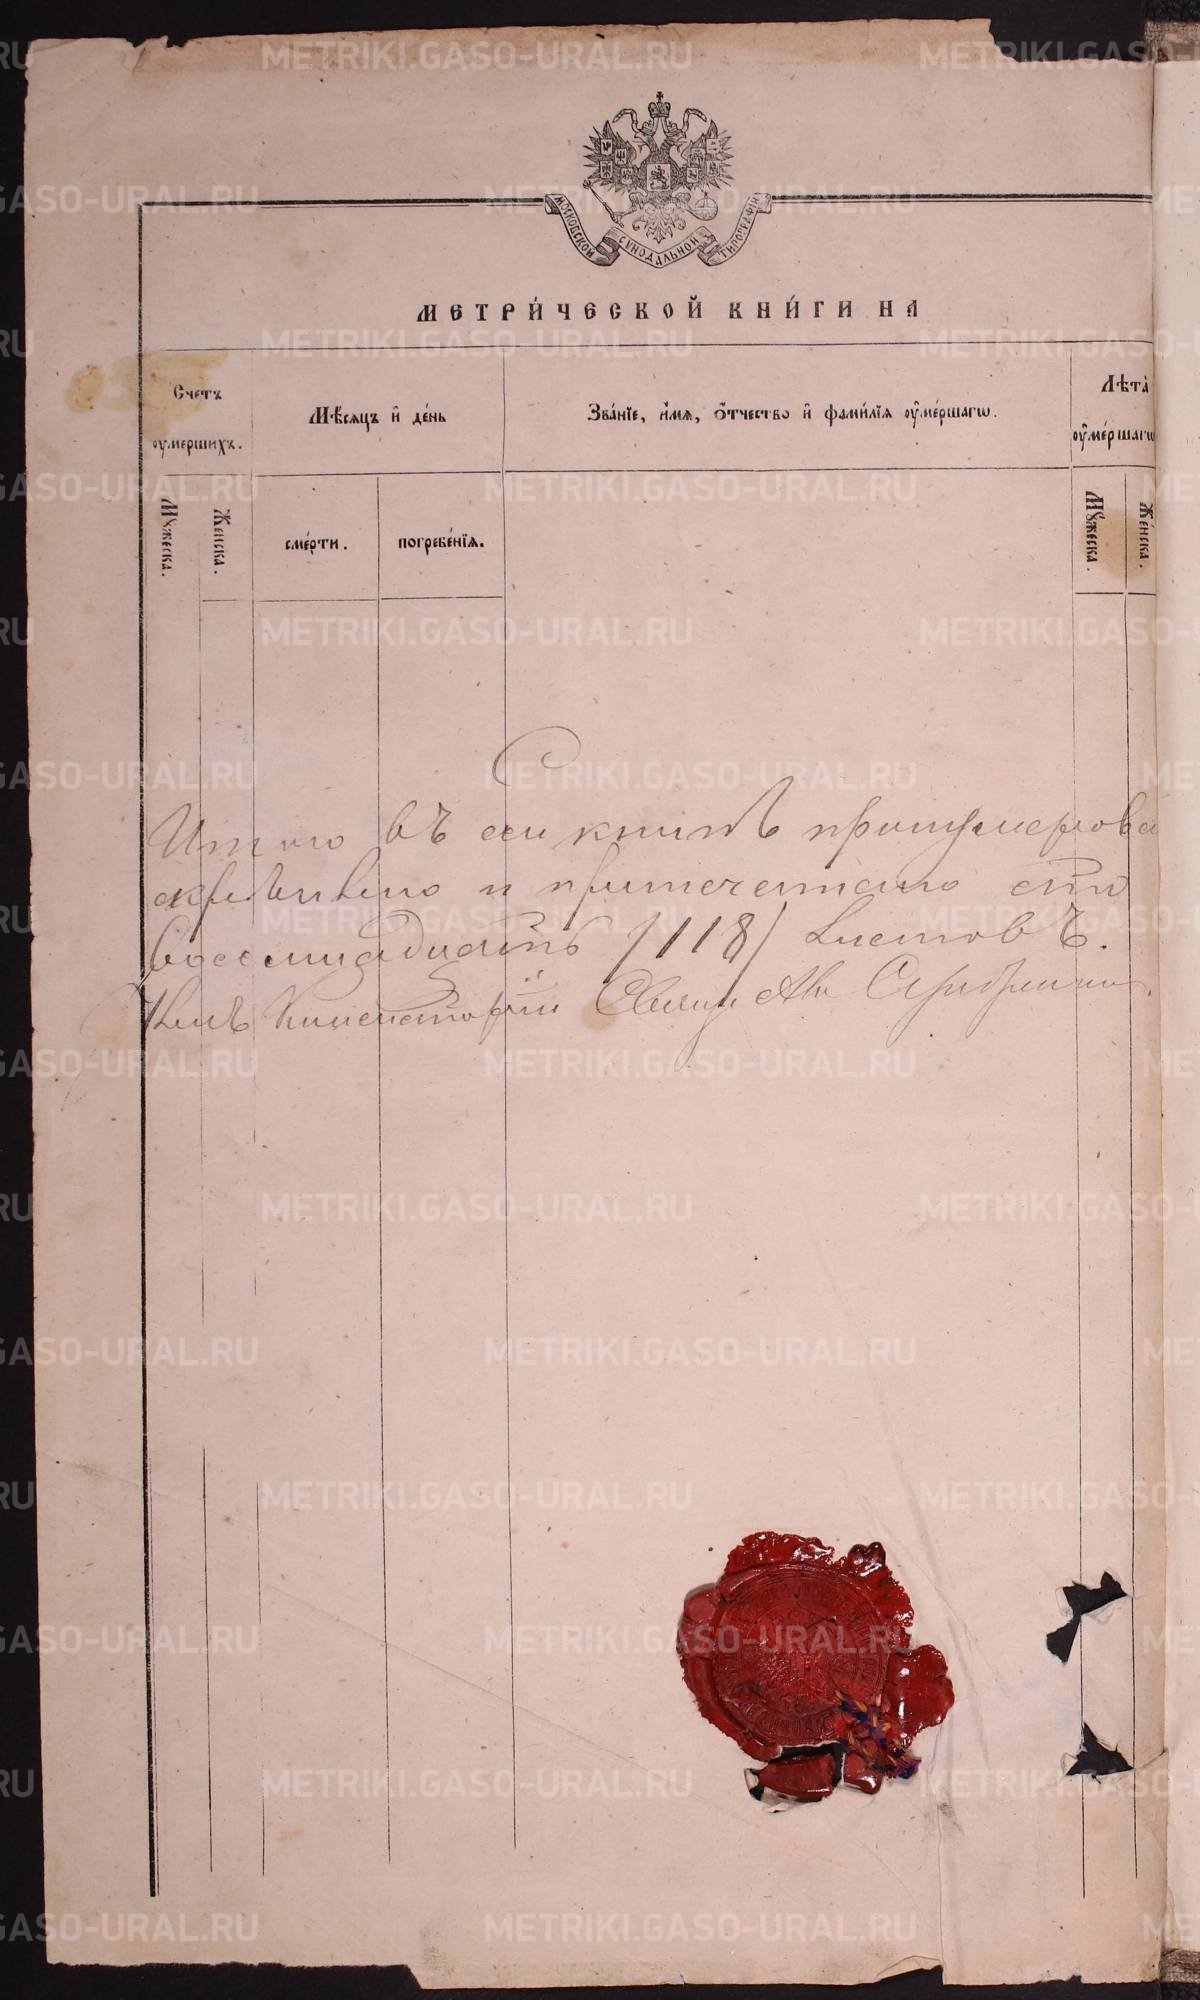 МОСКОВСКОЙ СУНОДАЛЬНОЙ ТИПОГРАФІИ
МЕТРИ́ЧЕСКОЙ КНИ́ГИ НА
Счетъ ѹмершихъ.
Мѣсяцъ и҆ де́нь
Зва́нїе, и҆́мѧ, ѻ҆́тчество и҆ фами́лїѧ ѹ҆ме́ршагѡ.
Лѣта̀ ѹ҆ме́ршагѡ
Мꙋ́жеска.
Же́нска.
сме́рти.
погребе́нїѧ.
Мꙋ́жеска.
Же́нска.
Итого въ сей книгѣ пронумерова
скрѣплено и припечатано сто
восемнадцать /118/ листовъ.
Членъ Консисторіи Священ
METRIKI.GASO-URAL.RU